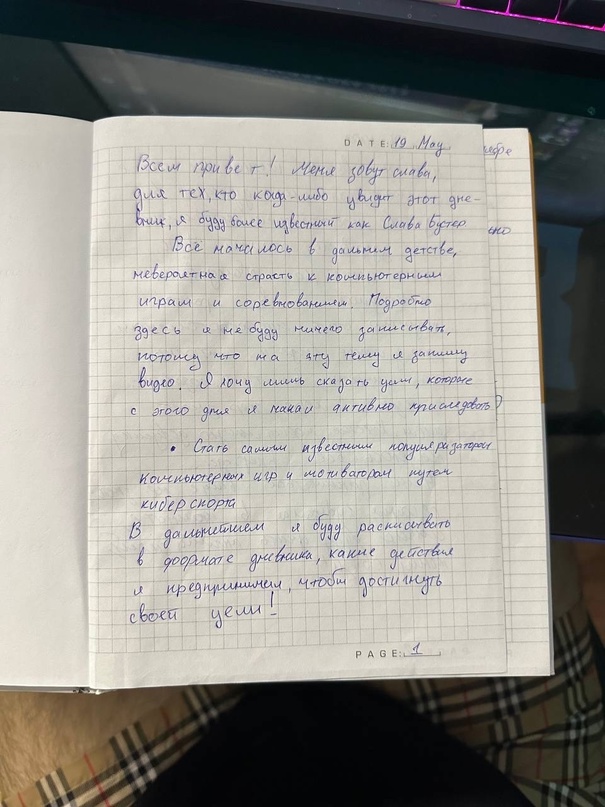 DATE: 19 May
Всем привет! Меня зовут слава,
для тех, кто когда-либо увидит этот дне-
вник, я буду более известный как Слава Бустер
Всё началось в дальнем детстве,
невероятная страсть к компьютерным
играм и соревнованием. Подробно
здесь я не буду ничего записывать,
потому что на эту тему я запишу
видео. Я хочу лишь сказать цели, которые
с этого дня я начал активно преследовать
• Стать самым известным популяризатором
компьютерных игр и мотиватором путем
киберспорта
В дальнейшем я буду расписывать
в формате дневника, какие действия
я предпринимал, чтобы достигнуть
своей цели!
PAGE: 1